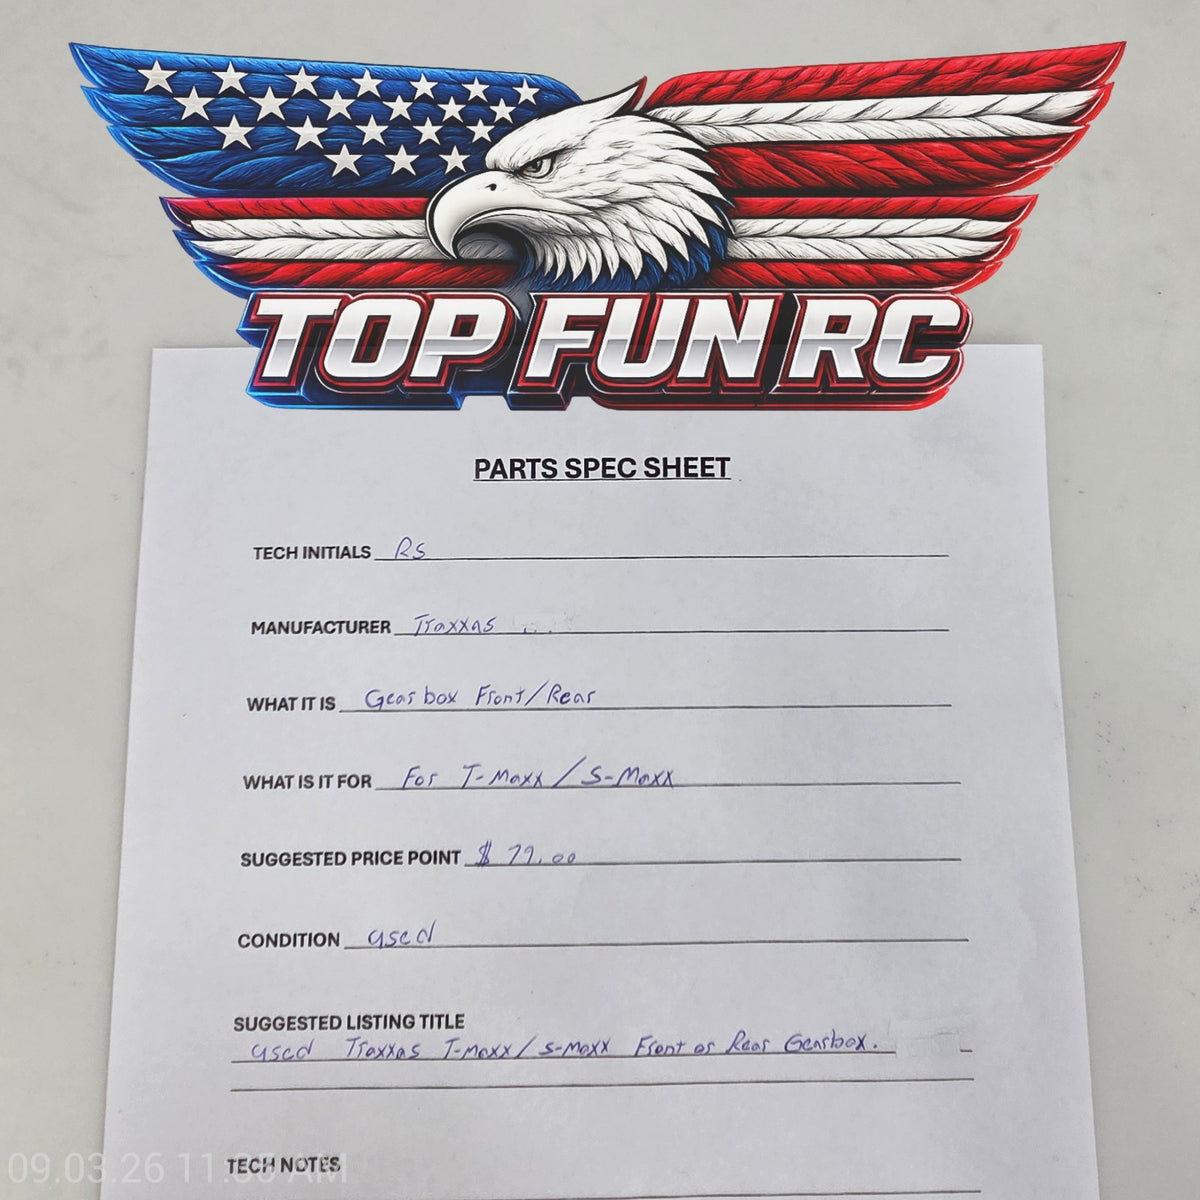 TOP FUN RC
PARTS SPEC SHEET
TECH INITIALS RS
MANUFACTURER Traxxas
WHAT IT IS Gear box Front/Rear
WHAT IS IT FOR For T-Maxx / S-Maxx
SUGGESTED PRICE POINT $ 79.00
CONDITION used
SUGGESTED LISTING TITLE
used Traxxas T-Maxx / S-Maxx Front or Rear Gearbox.
TECH NOTES
09.03.26 11: AM